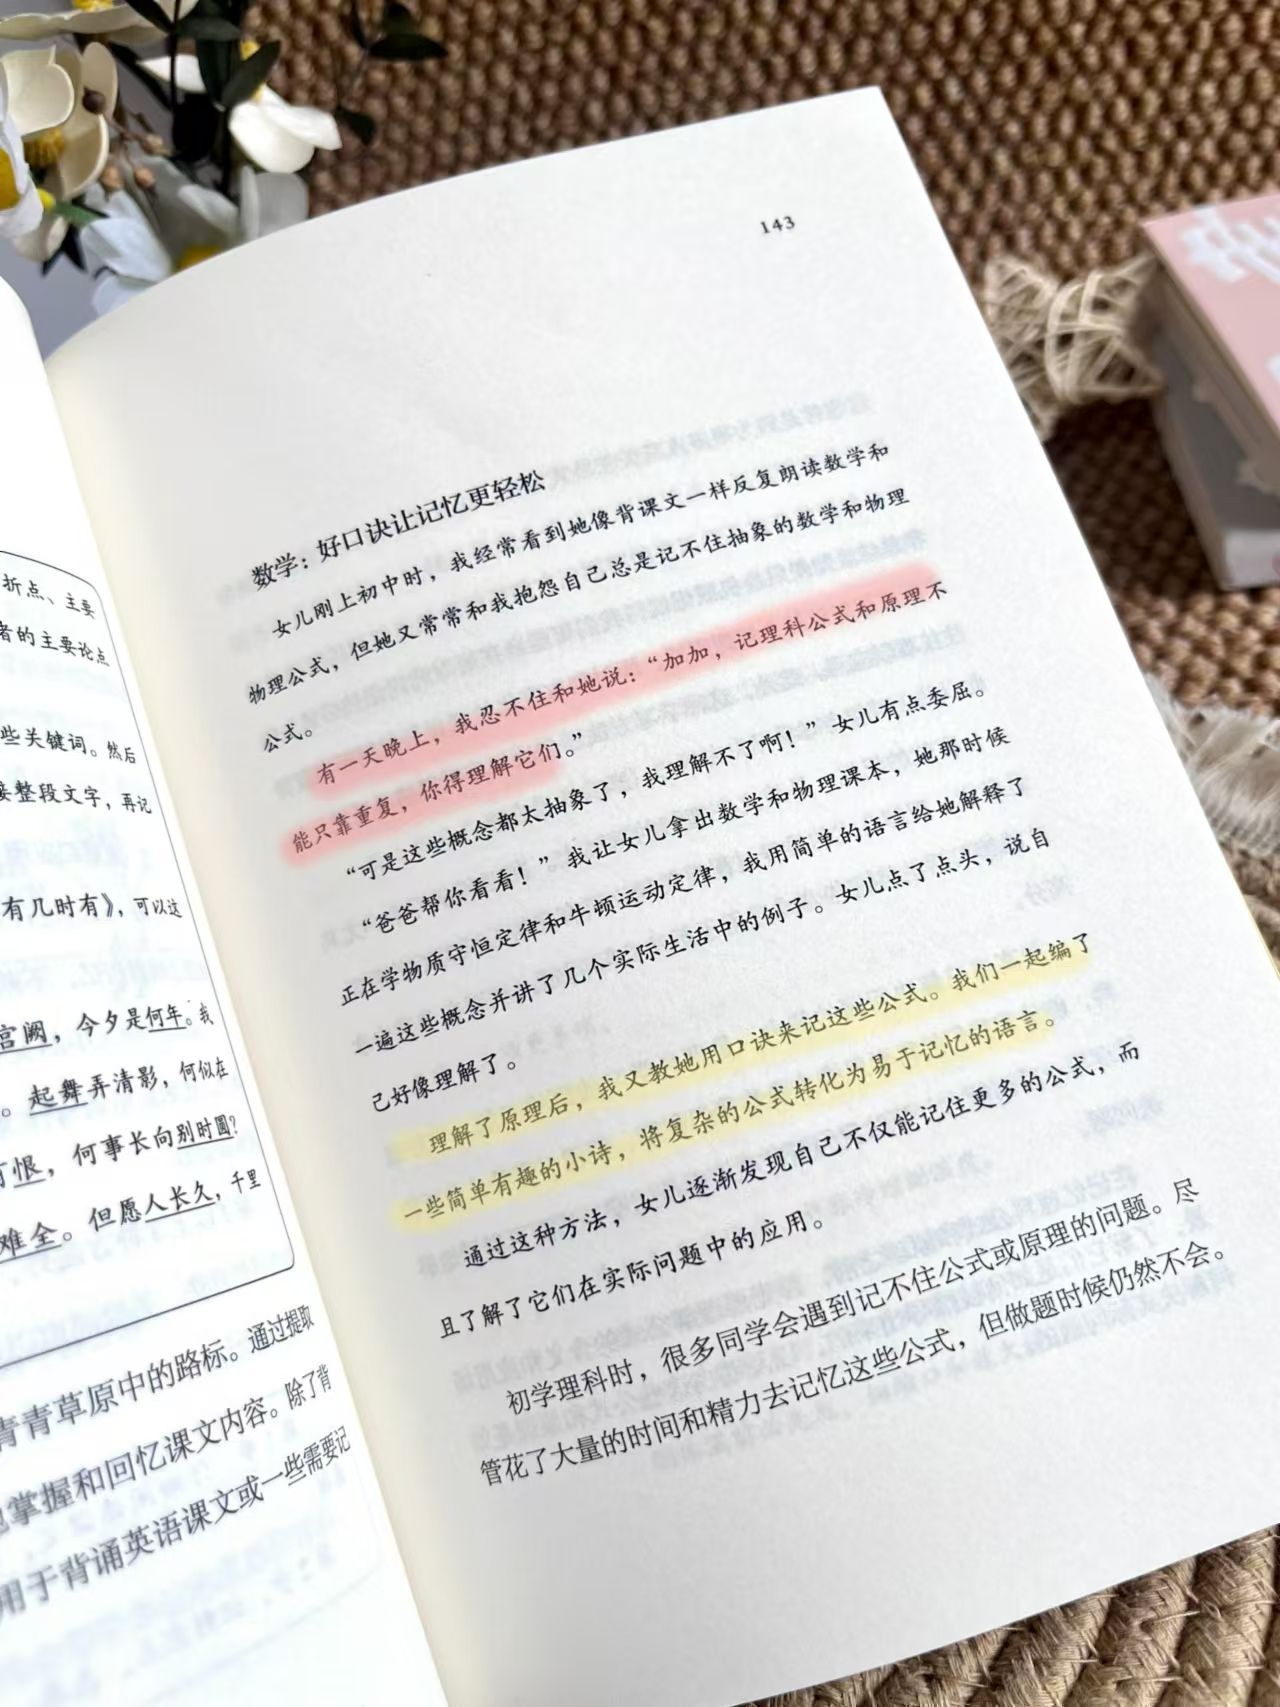 折点、主要
者的主要论点
些关键词。然后
整段文字，再记
有几时有》，可以这
宫阙，今夕是何年。我
。起舞弄清影，何似在
恨，何事长向别时圆？
难全。但愿人长久，千里
青草原中的路标。通过提取
掌握和回忆课文内容。除了背
用于背诵英语课文或一些需要记
143
数学：好口诀让记忆更轻松
女儿刚上初中时，我经常看到她像背课文一样反复朗读数学和
物理公式，但她又常常和我抱怨自己总是记不住抽象的数学和物理
公式。
有一天晚上，我忍不住和她说：“加加，记理科公式和原理不
能只靠重复，你得理解它们。”
“可是这些概念都太抽象了，我理解不了啊！”女儿有点委屈。
“爸爸帮你看看！”。我让女儿拿出数学和物理课本，她那时候
正在学物质守恒定律和牛顿运动定律，我用简单的语言给她解释了
一遍这些概念并讲了几个实际生活中的例子。女儿点了点头，说自
己好像理解了。
理解了原理后，我又教她用口诀来记这些公式。我们一起编了
一些简单有趣的小诗，将复杂的公式转化为易于记忆的语言。
通过这种方法，女儿逐渐发现自己不仅能记住更多的公式，而
且了解了它们在实际问题中的应用。
初学理科时，很多同学会遇到记不住公式或原理的问题。尽
管花了大量的时间和精力去记忆这些公式，但做题时候仍然不会。